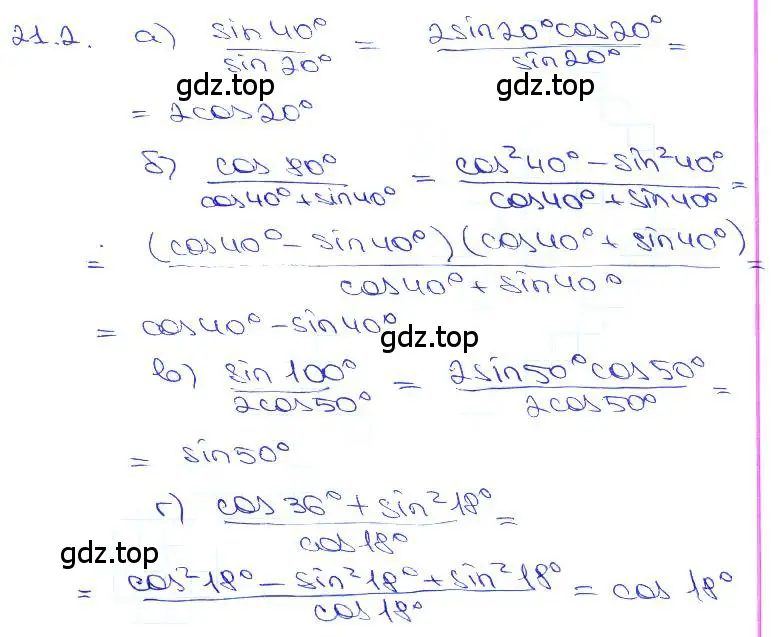 21.2. а) sin40°/sin20° = 2sin20°cos20°/sin20° =
gdz.top gdz.top
= 2cos20°
б) cos80°/(cos40°+sin40°) = (cos²40°-sin²40°)/(cos40°+sin40°) =
= (cos40°-sin40°)(cos40°+sin40°)/(cos40°+sin40°) =
= cos40°-sin40°
gdz.top
в) sin100°/2cos50° = 2sin50°cos50°/2cos50° =
= sin50°
г) (cos36°+sin²18°)/cos18° =
gdz.top
= (cos²18°-sin²18°+sin²18°)/cos18° = cos18°